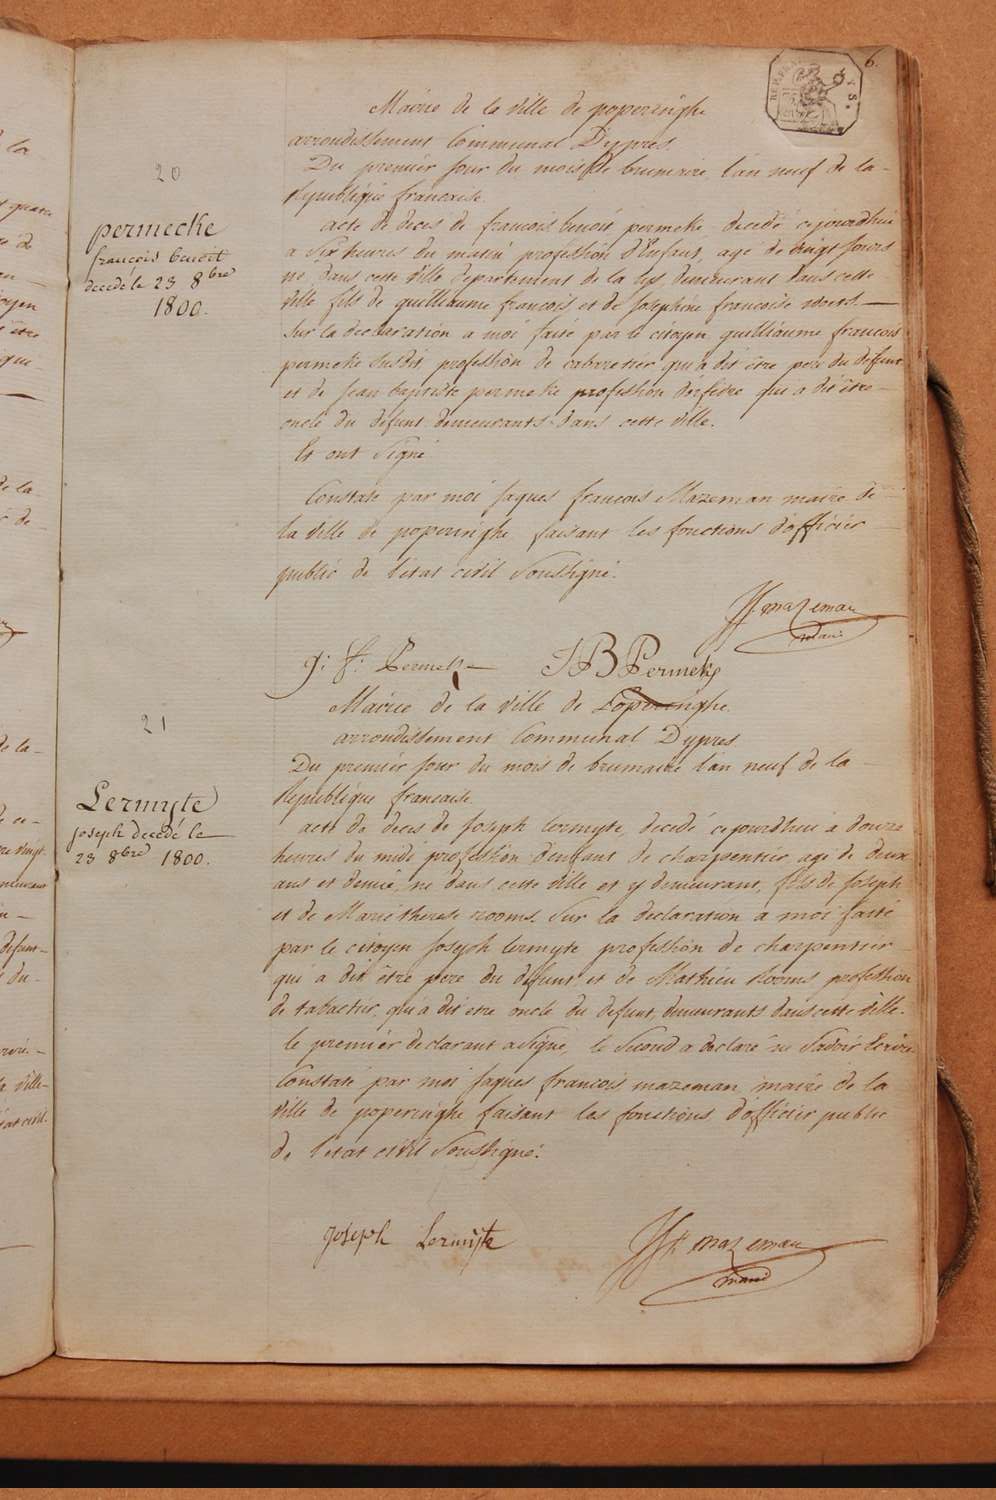 6.
20
permecke
francois benoit
decedé le 23 8bre
1800.
Mairie de la ville de poperinghe
arrondissement Communal D'ypres
Du premier jour du mois de brumaire, l'an neuf de la
Republique francaise.
acte de deces de francois benoit permeke decedé cejourdhui
a six heures du matin profession d'Enfant, agé de vingt jours
né dans cette ville departement de la lys, demeurant dans cette
ville fils de guilliaume francois et de Josephine francoise
Sur la declaration a moi faite par le citoyen guilliaume francois
permeke susdit profession de cabaretier qui a dit être pere du defunt
et de Jean baptiste permeke profession d'orfevre qui a dit être
oncle du défunt demeurants dans cette ville.
Et ont Signé
Constaté par moi Jaques francois Mazeman maire de
la ville de poperinghe faisant les fonctions d'officier
public de l'état civil Soussigné.
JF. mazeman
maire
g: f: Permeke
JB Permeke
21
Lermyte
joseph decedé le
23 8bre 1800.
Mairie de la ville de Poperinghe
arrondissement Communal D'ypres
Du premier jour du mois de brumaire l'an neuf de la
Republique francaise.
acte de deces de Joseph lermyte, decedé cejourdhui a douze
heures du midi profession d'enfant de charpentier, agé de deux
ans et demie, né dans cette ville et y demeurant, fils de Joseph
et de Marie therese rooms. Sur la declaration a moi faite
par le citoyen Joseph lermyte profession de charpentier
qui a dit être pere du defunt et de Mathieu Rooms profession
de tabactier, qui a dit etre oncle du defunt, demeurants dans cette ville.
le premier declarant a Signé, le Second a declaré ne Savoir Ecrire
Constaté par moi Jaques francois mazeman maire de la
ville de poperinghe faisant les fonctions d'officier public
de l'état civil Soussigné.
Joseph Lermyte
JF. mazeman
maire